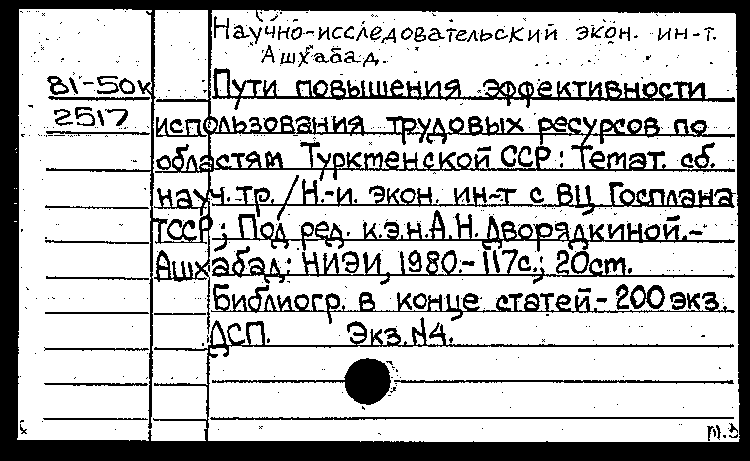 Научно-исследовательский экон. ин-т.
Ашхабад.
81-50к Пути повышения эффективности
2517 использования трудовых ресурсов по
областям Туркменской ССР: Темат. сб.
науч. тр. / Н.-и. экон. ин-т с ВЦ Госплана
ТССР; Под ред. к.э.н. А.Н. Дворядкиной.-
Ашхабад: НИЭИ, 1980.- 117с.; 20см.
Библиогр. в конце статей.- 200 экз.
ДСП. Экз. N4.
т.3